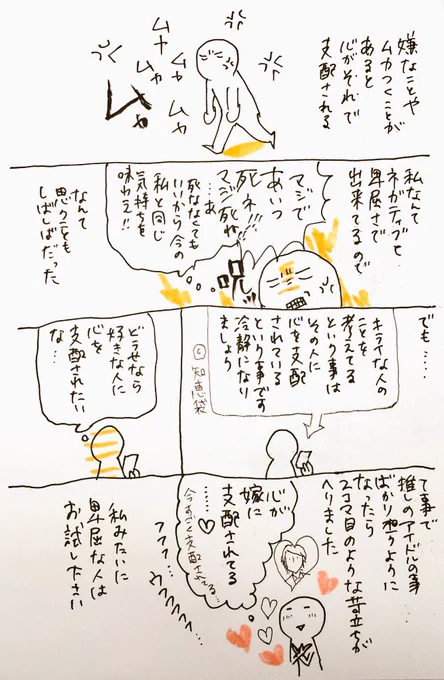 嫌なことや
ムカつくことが
あると
心がそれで
支配される
ムャ
ムャ
ムャ
ムャ
私なんて
ネガティブと
卑屈さで
出来てるので
マジで
あいつ
死ネ!!!
マジ死ね!!
……あ
死ななくても
いいから今の
私と同じ
気持ちを
味わえ!!
呪
なんて
思うことも
しばしばだった
でも……
キライな人の
ことを
考えてる
という事は
その人に
心を支配
されている
という事です
冷静になり
ましょう
©知恵袋
どうせなら
好きな人に
心を
支配されたい
な…
て事で
推しのアイドルの事
ばかり想うように
なったら
2コマ目のような苛立ちが
へりました
心が
嫁に
支配されてる
……♡
今すごく支配されてる…
フフフ…
ウフフフフ…
私みたいに
卑屈な人は
お試し下さい